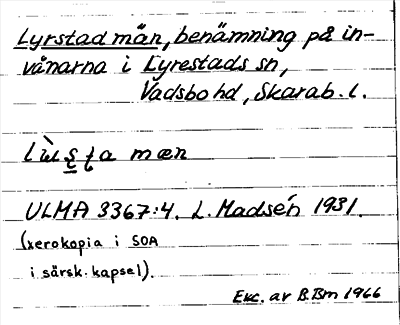 Lyrstad män, benämning på in-
vånarna i Lyrestads sn,
Vadsbo hd, Skarab. l.
ULMA 3367:4. L. Madsén 1931.
(xerokopia i SOA
i särsk. kapsel).
Exc. av B.Bm 1966